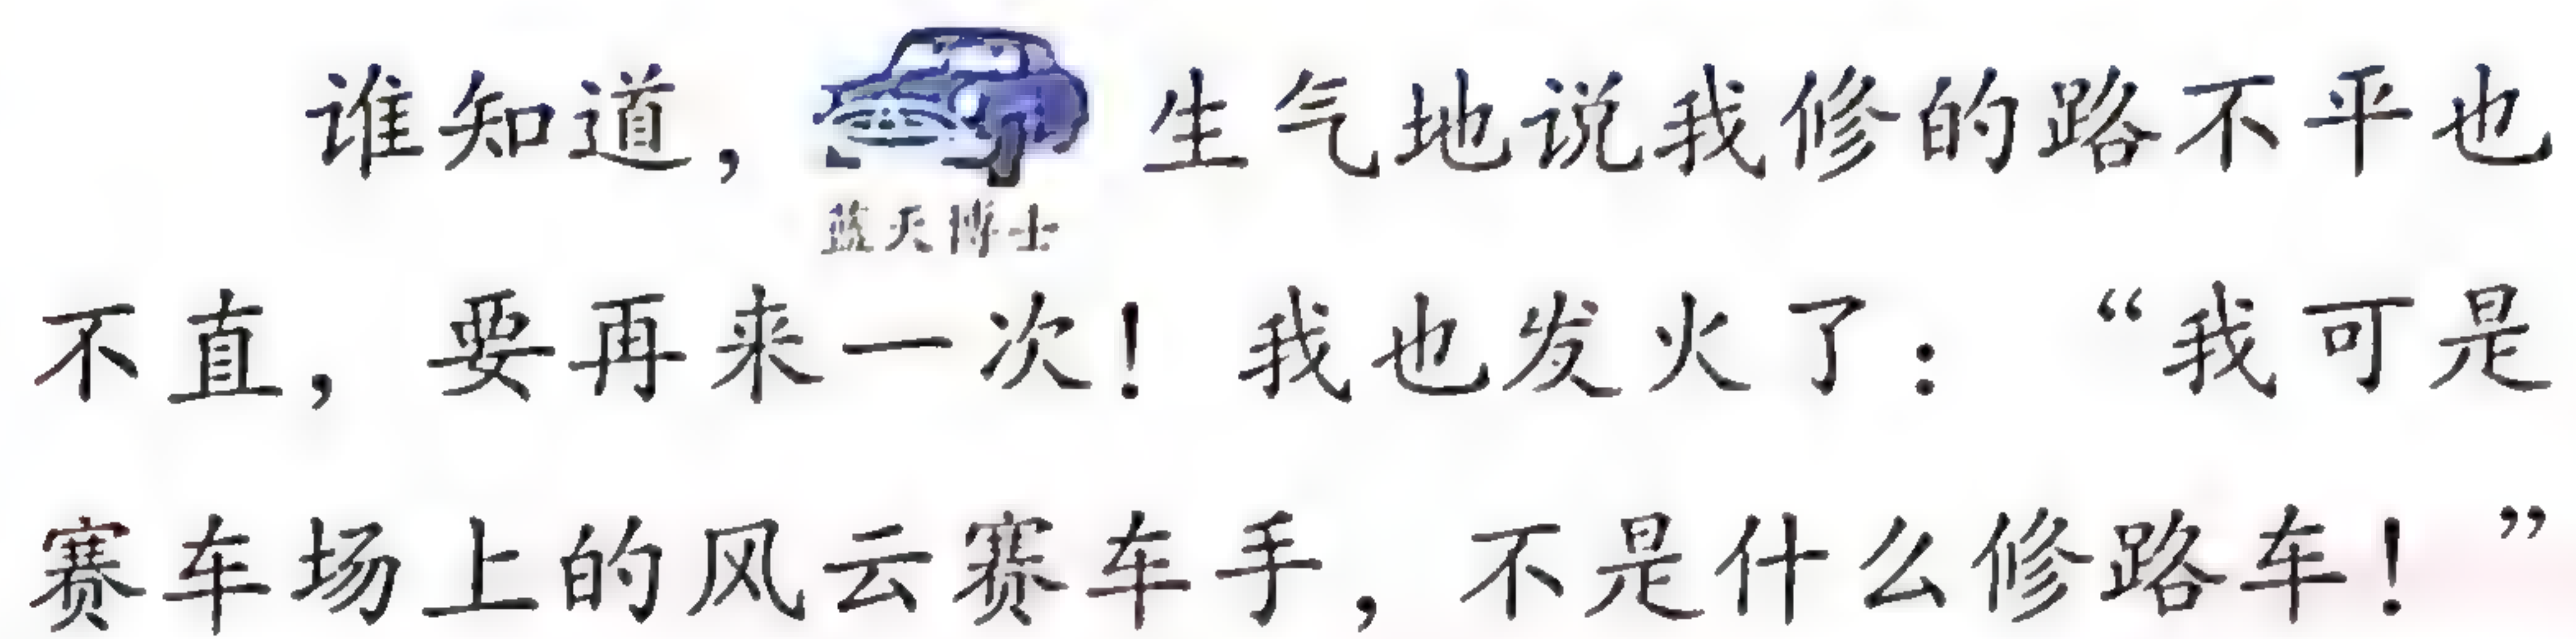 谁知道， 生气地说我修的路不平也
蓝天博士
不直，要再来一次！我也发火了：“我可是
赛车场上的风云赛车手，不是什么修路车！”